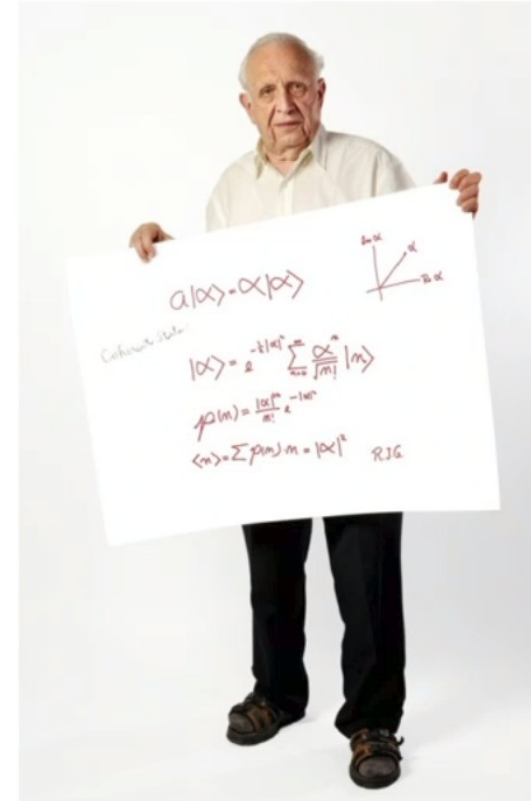 Im α
α
Re α
a|α⟩=α|α⟩
Coherent State:
|α⟩ = e^{-½|α|²} ∑_{n=0}^{∞} α^n/√n! |n⟩
p(n)= |α|^{2n}/n! e^{-|α|²}
⟨n⟩=∑ p(n)·n = |α|² RJG